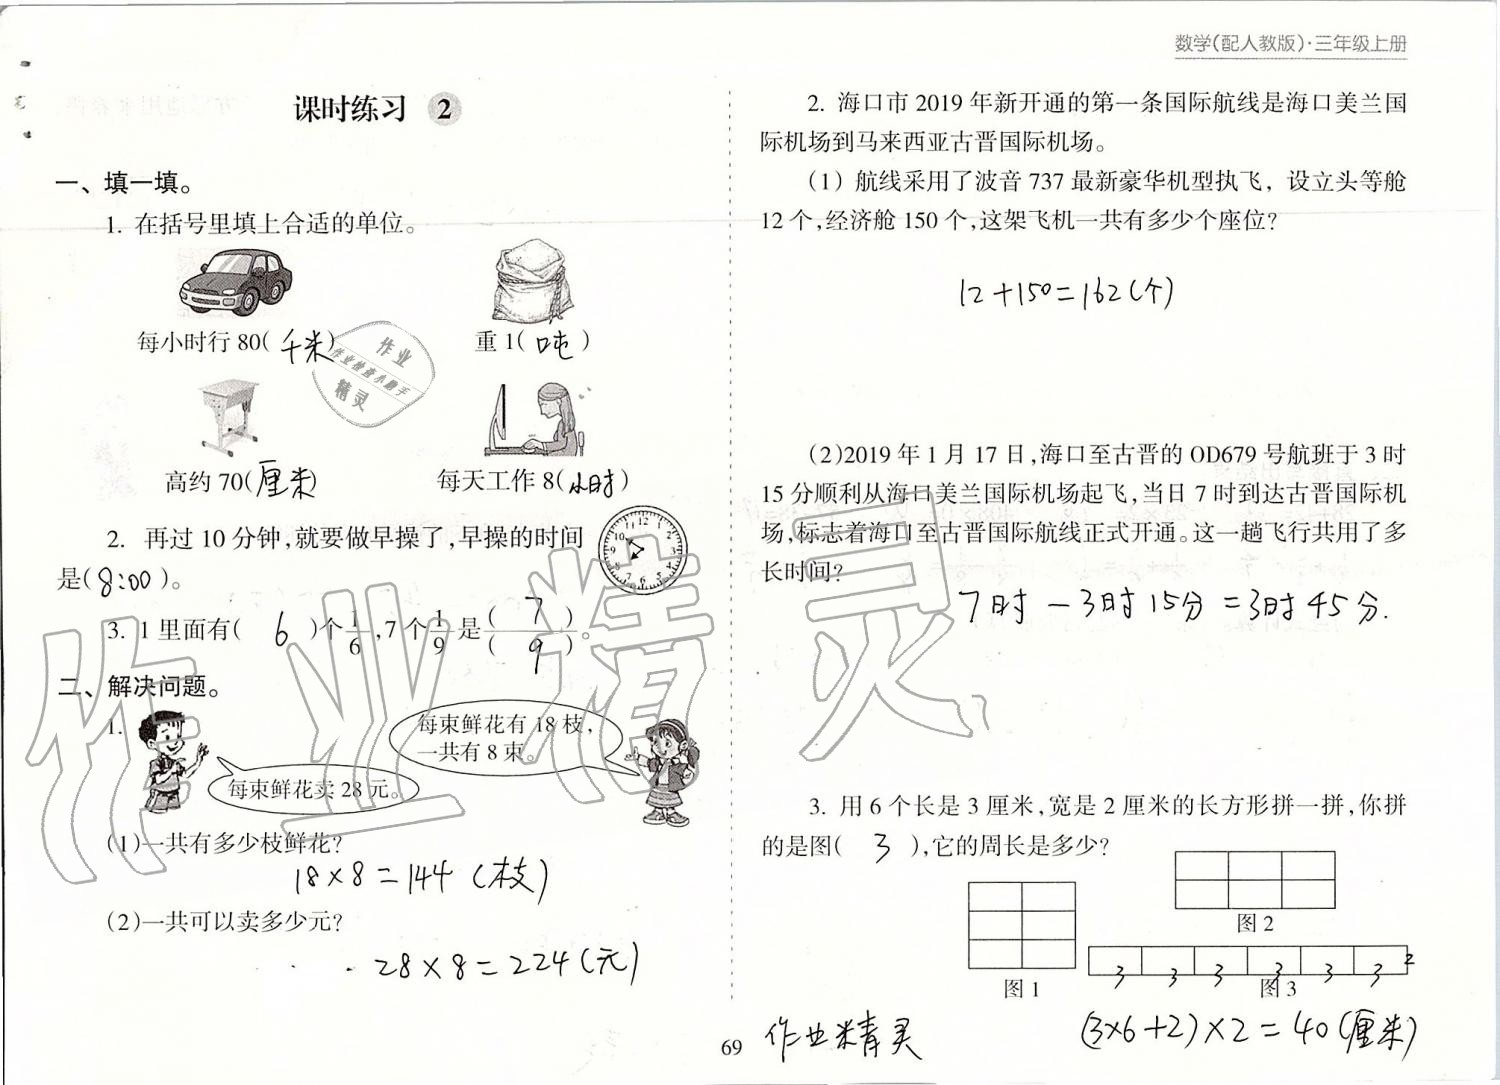 数学(配人教版)·三年级上册
课时练习 2
一、填一填。
1. 在括号里填上合适的单位。
每小时行 80( 千米 )
重 1( 吨 )
高约 70( 厘米 )
每天工作 8( 小时 )
2. 再过 10 分钟,就要做早操了,早操的时间
是( 8:00 )。
3. 1 里面有( 6 )个 1/6 ,7 个 1/9 是 ( 7 )/( 9 ) 。
二、解决问题。
1.
每束鲜花有 18 枝,
一共有 8 束。
每束鲜花卖 28 元。
(1)一共有多少枝鲜花?
18×8=144 (枝)
(2)一共可以卖多少元?
28×8=224(元)
2. 海口市 2019 年新开通的第一条国际航线是海口美兰国
际机场到马来西亚古晋国际机场。
(1) 航线采用了波音 737 最新豪华机型执飞, 设立头等舱
12 个,经济舱 150 个,这架飞机一共有多少个座位?
12+150=162(个)
(2)2019 年 1 月 17 日,海口至古晋的 OD679 号航班于 3 时
15 分顺利从海口美兰国际机场起飞,当日 7 时到达古晋国际机
场,标志着海口至古晋国际航线正式开通。这一趟飞行共用了多
长时间?
7时-3时15分=3时45分.
3. 用 6 个长是 3 厘米,宽是 2 厘米的长方形拼一拼,你拼
的是图( 3 ),它的周长是多少?
图 2
图 1
3 3 3 3 3 3 2
图 3
(3×6+2)×2=40(厘米)
作业精灵
69
作业精灵
作业
作业检查小助手
精灵